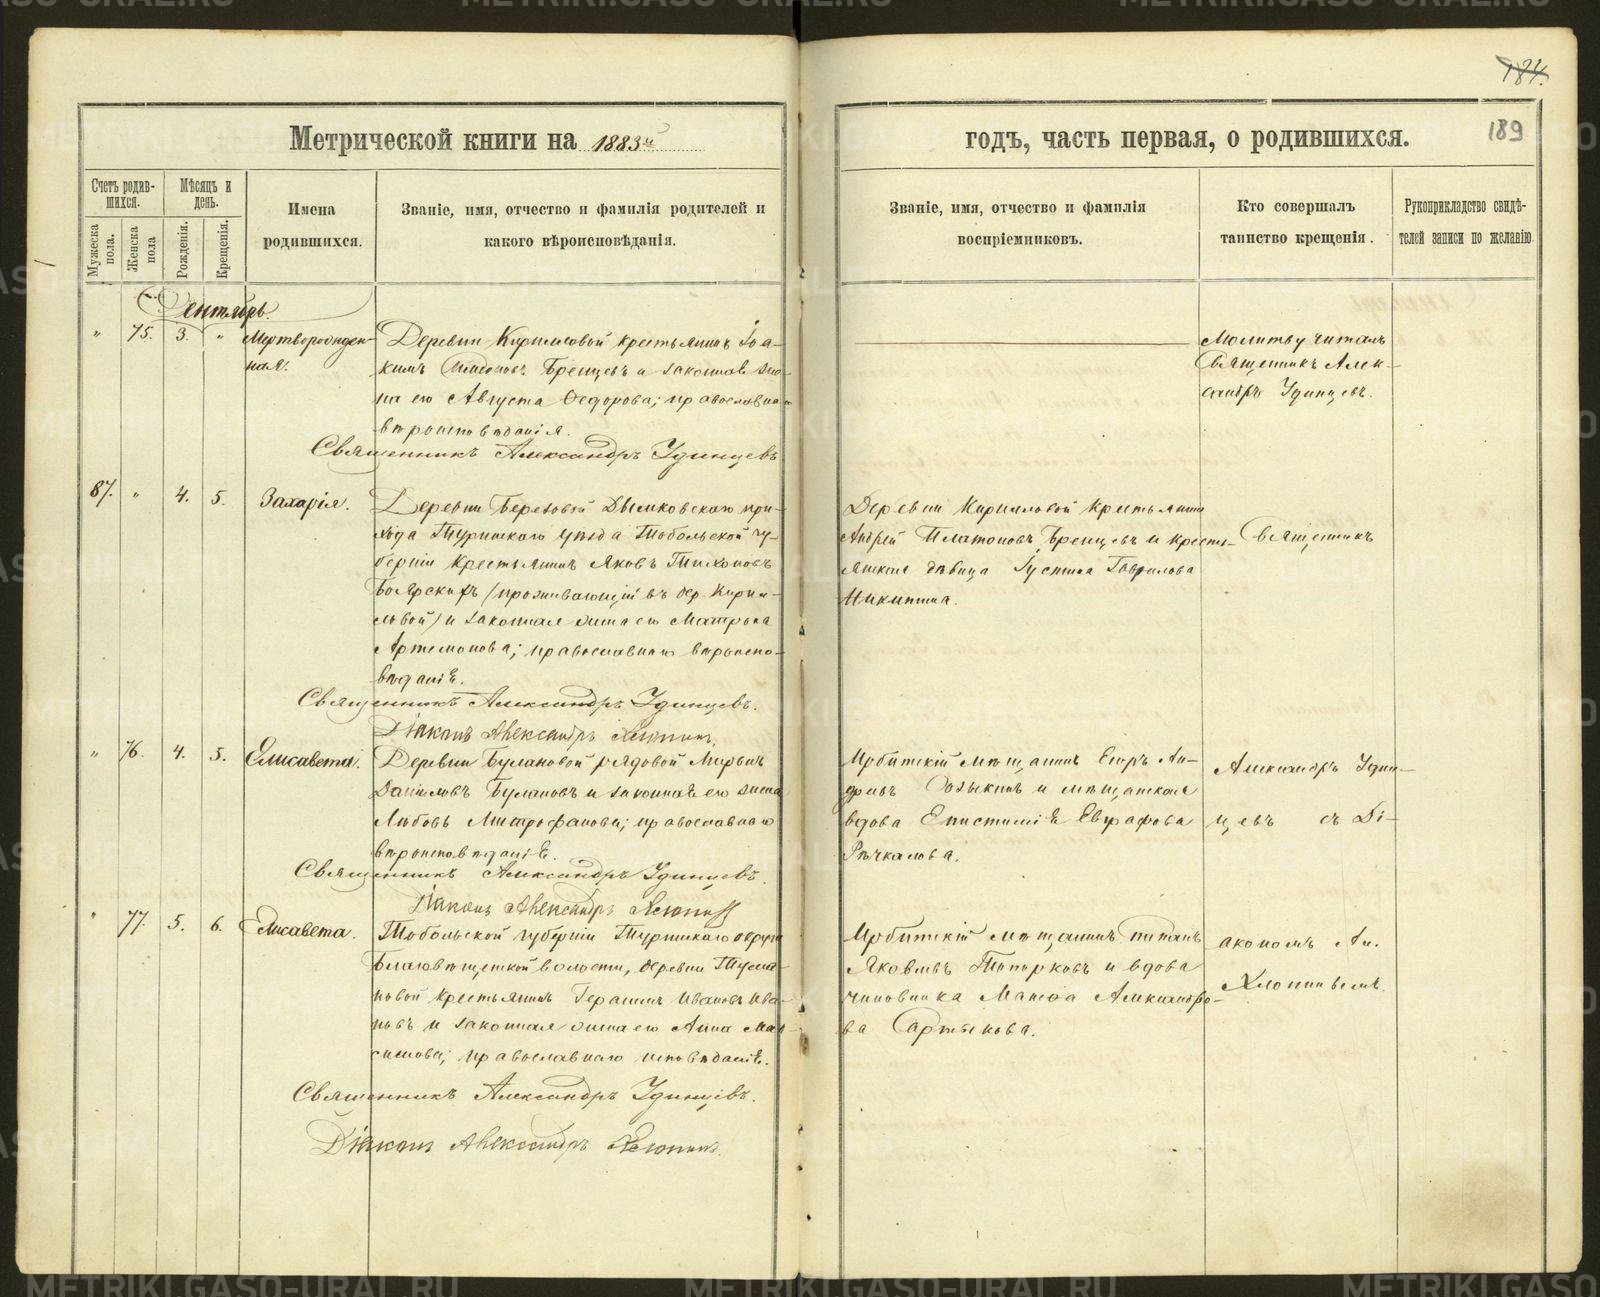 184.
189
Метрической книги на 1883й
годъ, часть первая, о родившихся.
Счетъ родив-
шихся.
Мужеска пола.
Женска пола
Мѣсяцъ и
день.
Рожденія.
Крещенія.
Имена
родившихся.
Званіе, имя, отчество и фамилія родителей и
какого вѣроисповѣданія.
Званіе, имя, отчество и фамилія
воспріемниковъ.
Кто совершалъ
таинство крещенія.
Рукоприкладство свидѣ-
телей записи по желанію.
Сентябрь.
" 75. 3. "
Мертворожден-
ная.
Деревни Кирилловой крестьянинъ Іоа-
кимъ Симеоновъ Бренцевъ и законная же-
на его Августа Ѳедорова; православнаго
вѣроисповѣданія.
Священникъ Александръ Удинцевъ
Молитву читалъ
Священникъ Алек-
сандръ Удинцевъ.
87. " 4. 5.
Захарія.
Деревни Березовой Дымковскаго при-
хода Туринскаго уѣзда Тобольской гу-
берніи крестьянинъ Яковъ Тихоновъ
Боярскихъ (проживающій въ дер. Кири-
ловой) и законная жена его Матрона
Артемонова; православнаго вѣроиспо-
вѣданія.
Священникъ Александръ Удинцевъ.
Діаконъ Александръ Хлопинъ.
Деревни Кирилловой крестьянинъ
Андрей Платоновъ Бренцевъ и кресть-
янская дѣвица Іустина Гаврилова
Никитина.
Священникъ
" 76. 4. 5.
Елисавета.
Деревни Булановой рядовой Миронъ
Даниловъ Булановъ и законная его жена
Любовь Митрофанова; православнаго
вѣроисповѣданія.
Священникъ Александръ Удинцевъ.
Діаконъ Александръ Хлопинъ
Ирбитскій мѣщанинъ Егоръ Ан-
дреевъ Языкинъ и мѣщанская
вдова Епистимія Евграфова
Рѣчкалова.
Александръ Удин-
цевъ съ Ді-
" 77. 5. 6.
Елисавета.
Тобольской губерніи Туринскаго округа
Благовѣщенской волости, деревни Тума-
новой крестьянинъ Герасимъ Ивановъ Ива-
новъ и законная жена его Анна Мак-
симова; православнаго исповѣданія.
Священникъ Александръ Удинцевъ.
Діаконъ Александръ Хлопинъ.
Ирбитскій мѣщанинъ
Яковлевъ Топорковъ и вдова
чиновника Александро-
ва Сартакова.
акономъ Ал.
Хлопинымъ.
METRIKI.GASO-URAL.RU